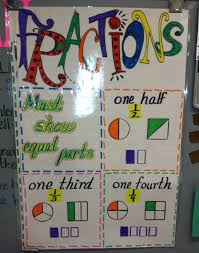 FRACTIONS
Must
show
equal parts
one half
1/2
one third
1/3
one fourth
1/4